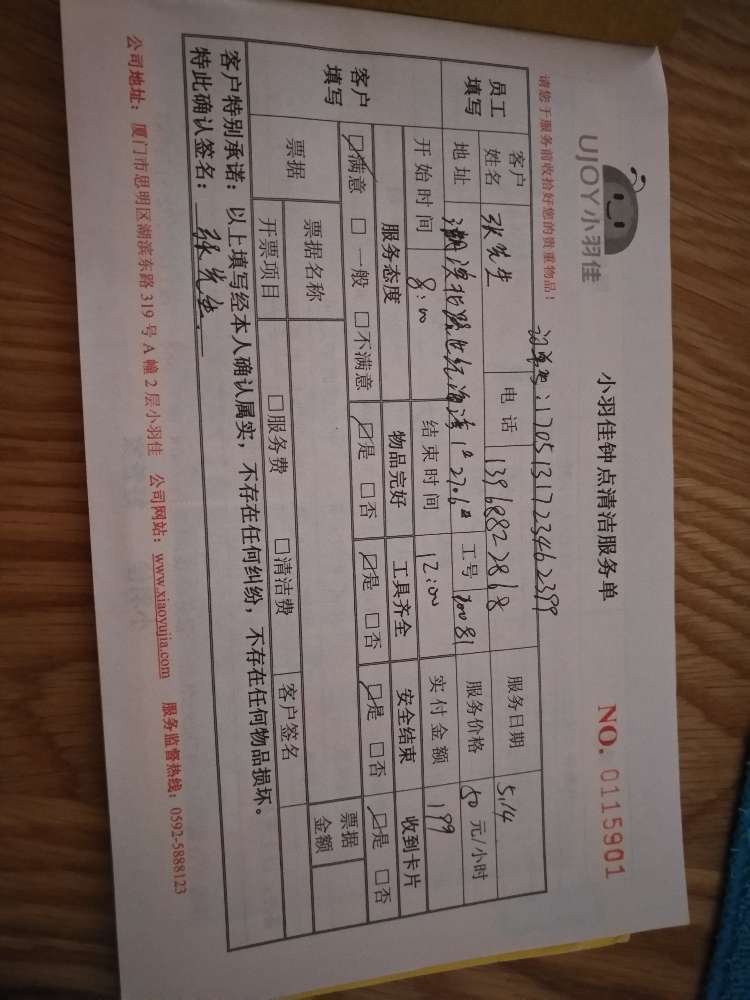 UJOY小羽佳
小羽佳钟点清洁服务单
NO. 0115901
请您于服务前收拾好您的贵重物品！
订单号：1705131723462399
员工填写 客户姓名 张先生 电话 13968822868 服务日期 5.14
地址 1# 2706# 工号 70081 服务价格 50 元/小时
开始时间 8:00 结束时间 12:00 实付金额 199
客户填写 服务态度 物品完好 工具齐全 安全结束 收到卡片
☑满意 □一般 □不满意 ☑是 □否 ☑是 □否 ☑是 □否 ☑是 □否
票据 票据名称 票据金额
开票项目 □服务费 □清洁费 客户签名
客户特别承诺：以上填写经本人确认属实，不存在任何纠纷，不存在任何物品损坏。
特此确认签名：张先生.
公司地址：厦门市思明区湖滨东路 319 号 A 幢 2 层小羽佳 公司网站：www.xiaoyujia.com 服务监督热线：0592-5888123